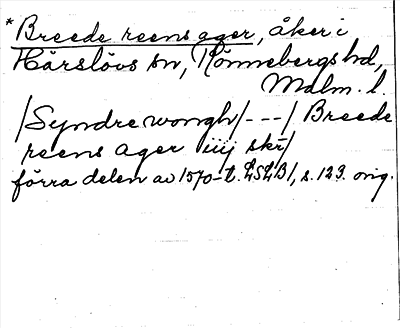 *Breede reens ager, åker i
Härslövs sn, Rönnebergs hd,
Malm. l.
/Syndre wongh/ - - - / Breede
reens ager iiij skr/
förra delen av 1570-t. LSLB/, s. 123. orig.